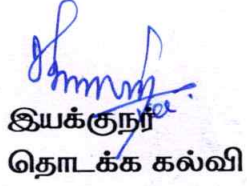 இயக்குநர்
தொடக்க கல்வி